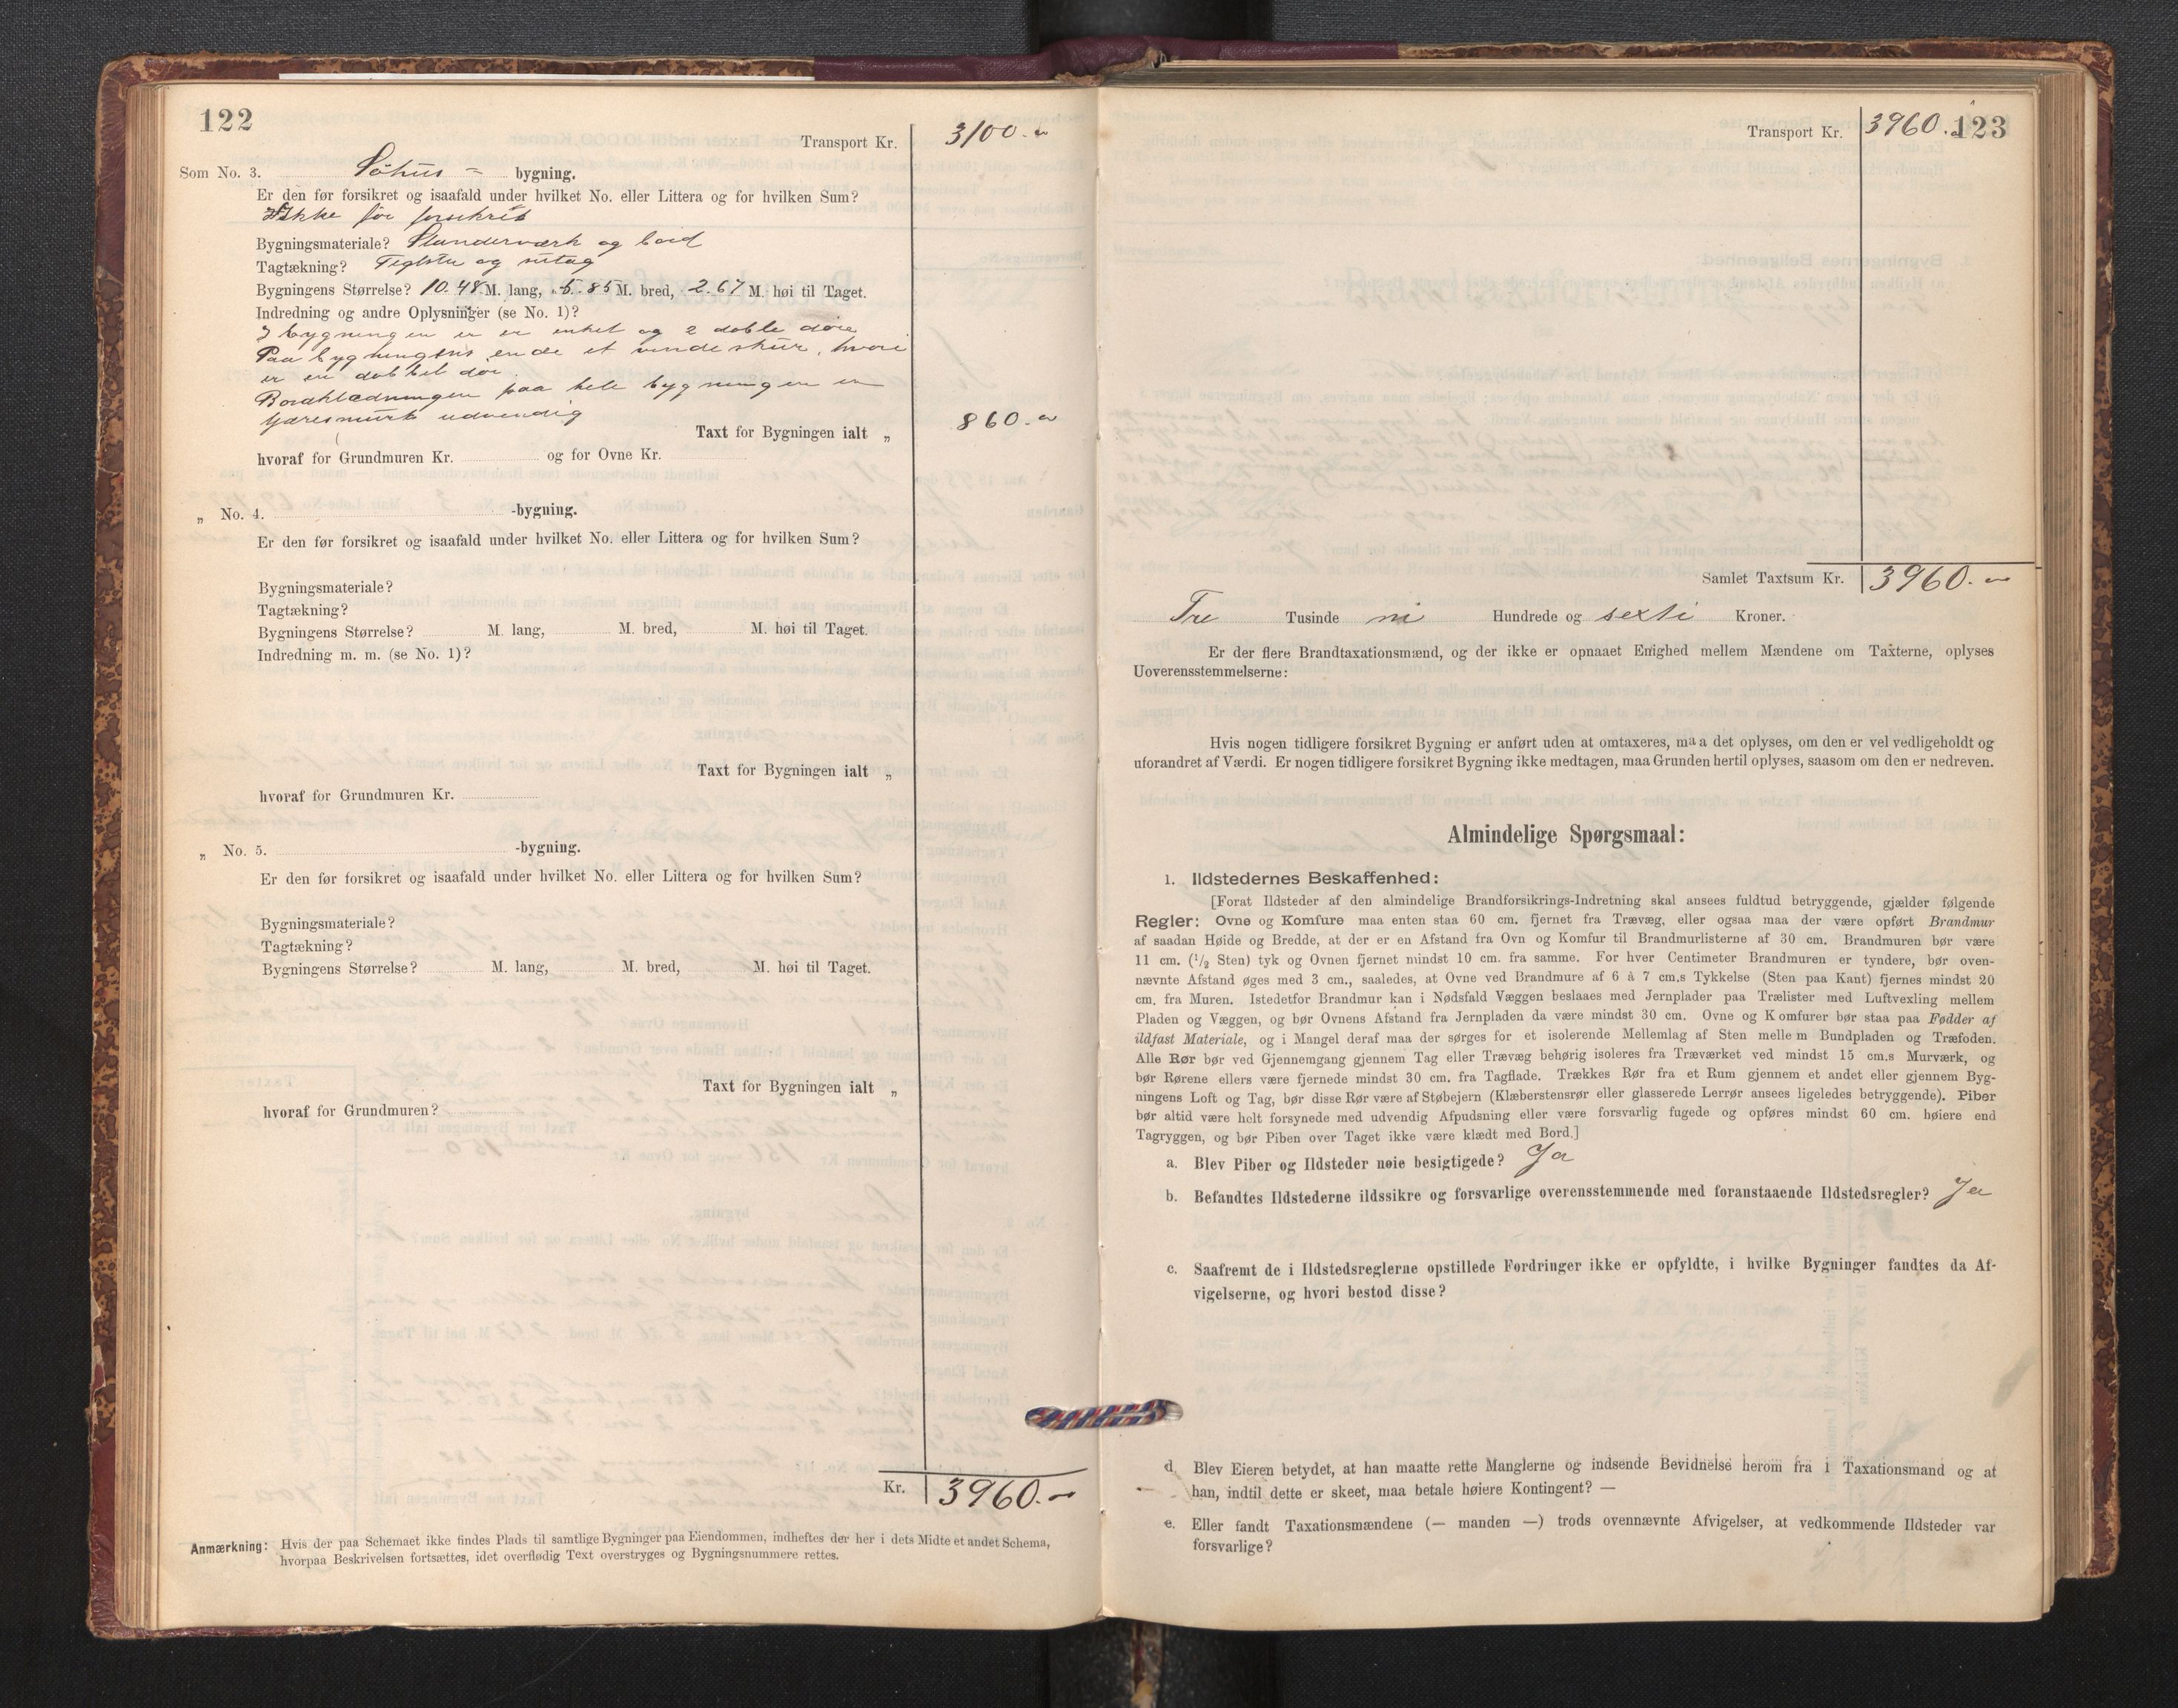 122
Transport Kr. 3100.-
Som No. 3. Söhus = bygning.
Er den før forsikret og isaafald under hvilket No. eller Littera og for hvilken Sum?
Ikke før forsikret
Bygningsmateriale? Standerværk og bord
Tagtækning? Teglsten og
Bygningens Størrelse? 10.48 M. lang, 5.85 M. bred, 2.67 M. høi til Taget.
Indredning og andre Oplysninger (se No. 1)?
I bygningen er en enkel og 2 doble döre
Paa bygningens ende et skur, hvori
er en dobbel dör.
Bordklædningen paa hele bygningen er
udvendig
Taxt for Bygningen ialt „ 860.-
hvoraf for Grundmuren Kr. og for Ovne Kr.
„ No. 4. -bygning.
Er den før forsikret og isaafald under hvilket No. eller Littera og for hvilken Sum?
Bygningsmateriale?
Tagtækning?
Bygningens Størrelse? M. lang, M. bred, M. høi til Taget.
Indredning m. m. (se No. 1)?
Taxt for Bygningen ialt „
hvoraf for Grundmuren Kr.
„ No. 5. -bygning.
Er den før forsikret og isaafald under hvilket No. eller Littera og for hvilken Sum?
Bygningsmateriale?
Tagtækning?
Bygningens Størrelse? M. lang, M. bred, M. høi til Taget.
Taxt for Bygningen ialt „
hvoraf for Grundmuren?
Kr. 3960.-
Anmærkning: Hvis der paa Schemaet ikke findes Plads til samtlige Bygninger paa Eiendommen, indheftes der her i dets Midte et andet Schema,
hvorpaa Beskrivelsen fortsættes, idet overflødig Text overstryges og Bygningsnummere rettes.
Transport Kr. 3960.- 123
Samlet Taxtsum Kr. 3960.-
Tre Tusinde ni Hundrede og sexti Kroner.
Er der flere Brandtaxationsmænd, og der ikke er opnaaet Enighed mellem Mændene om Taxterne, oplyses
Uoverensstemmelserne:
Hvis nogen tidligere forsikret Bygning er anført uden at omtaxeres, maa det oplyses, om den er vel vedligeholdt og
uforandret af Værdi. Er nogen tidligere forsikret Bygning ikke medtagen, maa Grunden hertil oplyses, saasom om den er nedreven.
Almindelige Spørgsmaal:
1. Ildstedernes Beskaffenhed:
[Forat Ildsteder af den almindelige Brandforsikrings-Indretning skal ansees fuldtud betryggende, gjælder følgende
Regler: Ovne og Komfure maa enten staa 60 cm. fjernet fra Trævæg, eller ogsaa maa der være opført Brandmur
af saadan Høide og Bredde, at der er en Afstand fra Ovn og Komfur til Brandmurlisterne af 30 cm. Brandmuren bør være
11 cm. (1/2 Sten) tyk og Ovnen fjernet mindst 10 cm. fra samme. For hver Centimeter Brandmuren er tyndere, bør oven-
nævnte Afstand øges med 3 cm., saaledes, at Ovne ved Brandmure af 6 à 7 cm.s Tykkelse (Sten paa Kant) fjernes mindst 20
cm. fra Muren. Istedetfor Brandmur kan i Nødsfald Væggen beslaaes med Jernplader paa Trælister med Luftvexling mellem
Pladen og Væggen, og bør Ovnens Afstand fra Jernpladen da være mindst 30 cm. Ovne og Komfurer bør staa paa Fødder af
ildfast Materiale, og i Mangel deraf maa der sørges for et isolerende Mellemlag af Sten mellem Bundpladen og Træfoden.
Alle Rør bør ved Gjennemgang gjennem Tag eller Trævæg behørig isoleres fra Træværket ved mindst 15 cm.s Murværk, og
bør Rørene ellers være fjernede mindst 30 cm. fra Tagflade. Trækkes Rør fra et Rum gjennem et andet eller gjennem Byg-
ningens Loft og Tag, bør disse Rør være af Støbejern (Klæberstensrør eller glasserede Lerrør ansees ligeledes betryggende). Piber
bør altid være helt forsynede med udvendig Afpudsning eller være forsvarlig fugede og opføres mindst 60 cm. høiere end
Tagryggen, og bør Piben over Taget ikke være klædt med Bord.]
a. Blev Piber og Ildsteder nøie besigtigede? Ja
b. Befandtes Ildstederne ildssikre og forsvarlige overensstemmende med foranstaaende Ildstedsregler? Ja
c. Saafremt de i Ildstedsreglerne opstillede Fordringer ikke er opfyldte, i hvilke Bygninger fandtes da Af-
vigelserne, og hvori bestod disse?
d. Blev Eieren betydet, at han maatte rette Manglerne og indsende Bevidnelse herom fra 1 Taxationsmand og at
han, indtil dette er skeet, maa betale høiere Kontingent? —
e. Eller fandt Taxationsmændene (— manden —) trods ovennævnte Afvigelser, at vedkommende Ildsteder var
forsvarlige?